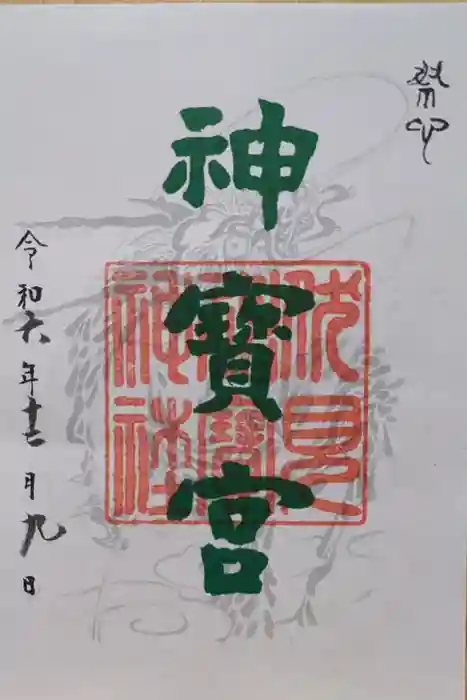 神寶宮
伏見
神寶
神社
令和六年十二月九日